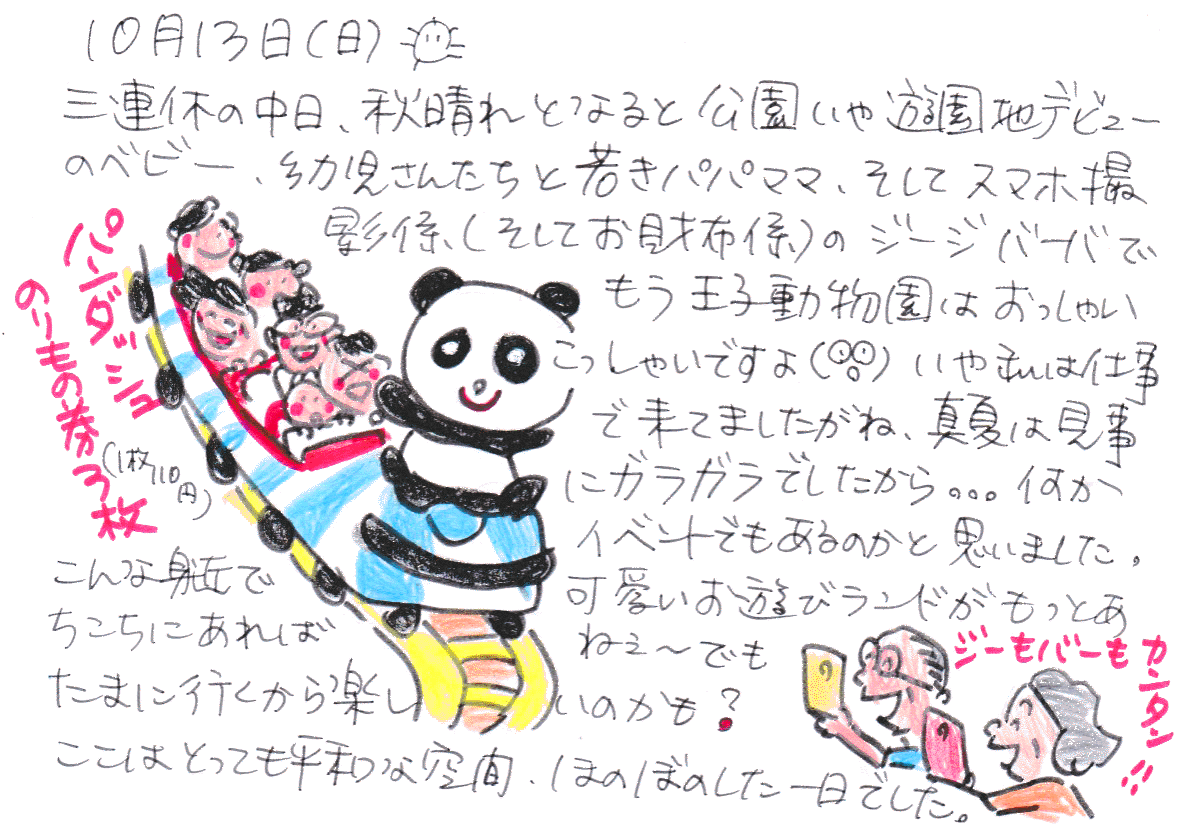 10月13日(日)
三連休の中日、秋晴れとなると公園いや遊園地デビュー
のベビー、幼児さんたちと若きパパママ、そしてスマホ撮
影係、(そしてお財布係)のジージバーバで
もう王子動物園はおっしゃい
こっしゃいですよ(◯◯)いや私は仕事
で来てましたがね、真夏は見事
にガラガラでしたから。。。何か
イベントでもあるのかと思いました。
こんな身近で可愛いお遊びランドがもっとあ
ちこちにあればねぇ〜でも
たまに行くから楽しいのかも?
ここはとっても平和な空間、ほのぼのした一日でした。
パンダッシュ
のりもの券3枚
(1枚110円)
ジーもバーもカンタン!!